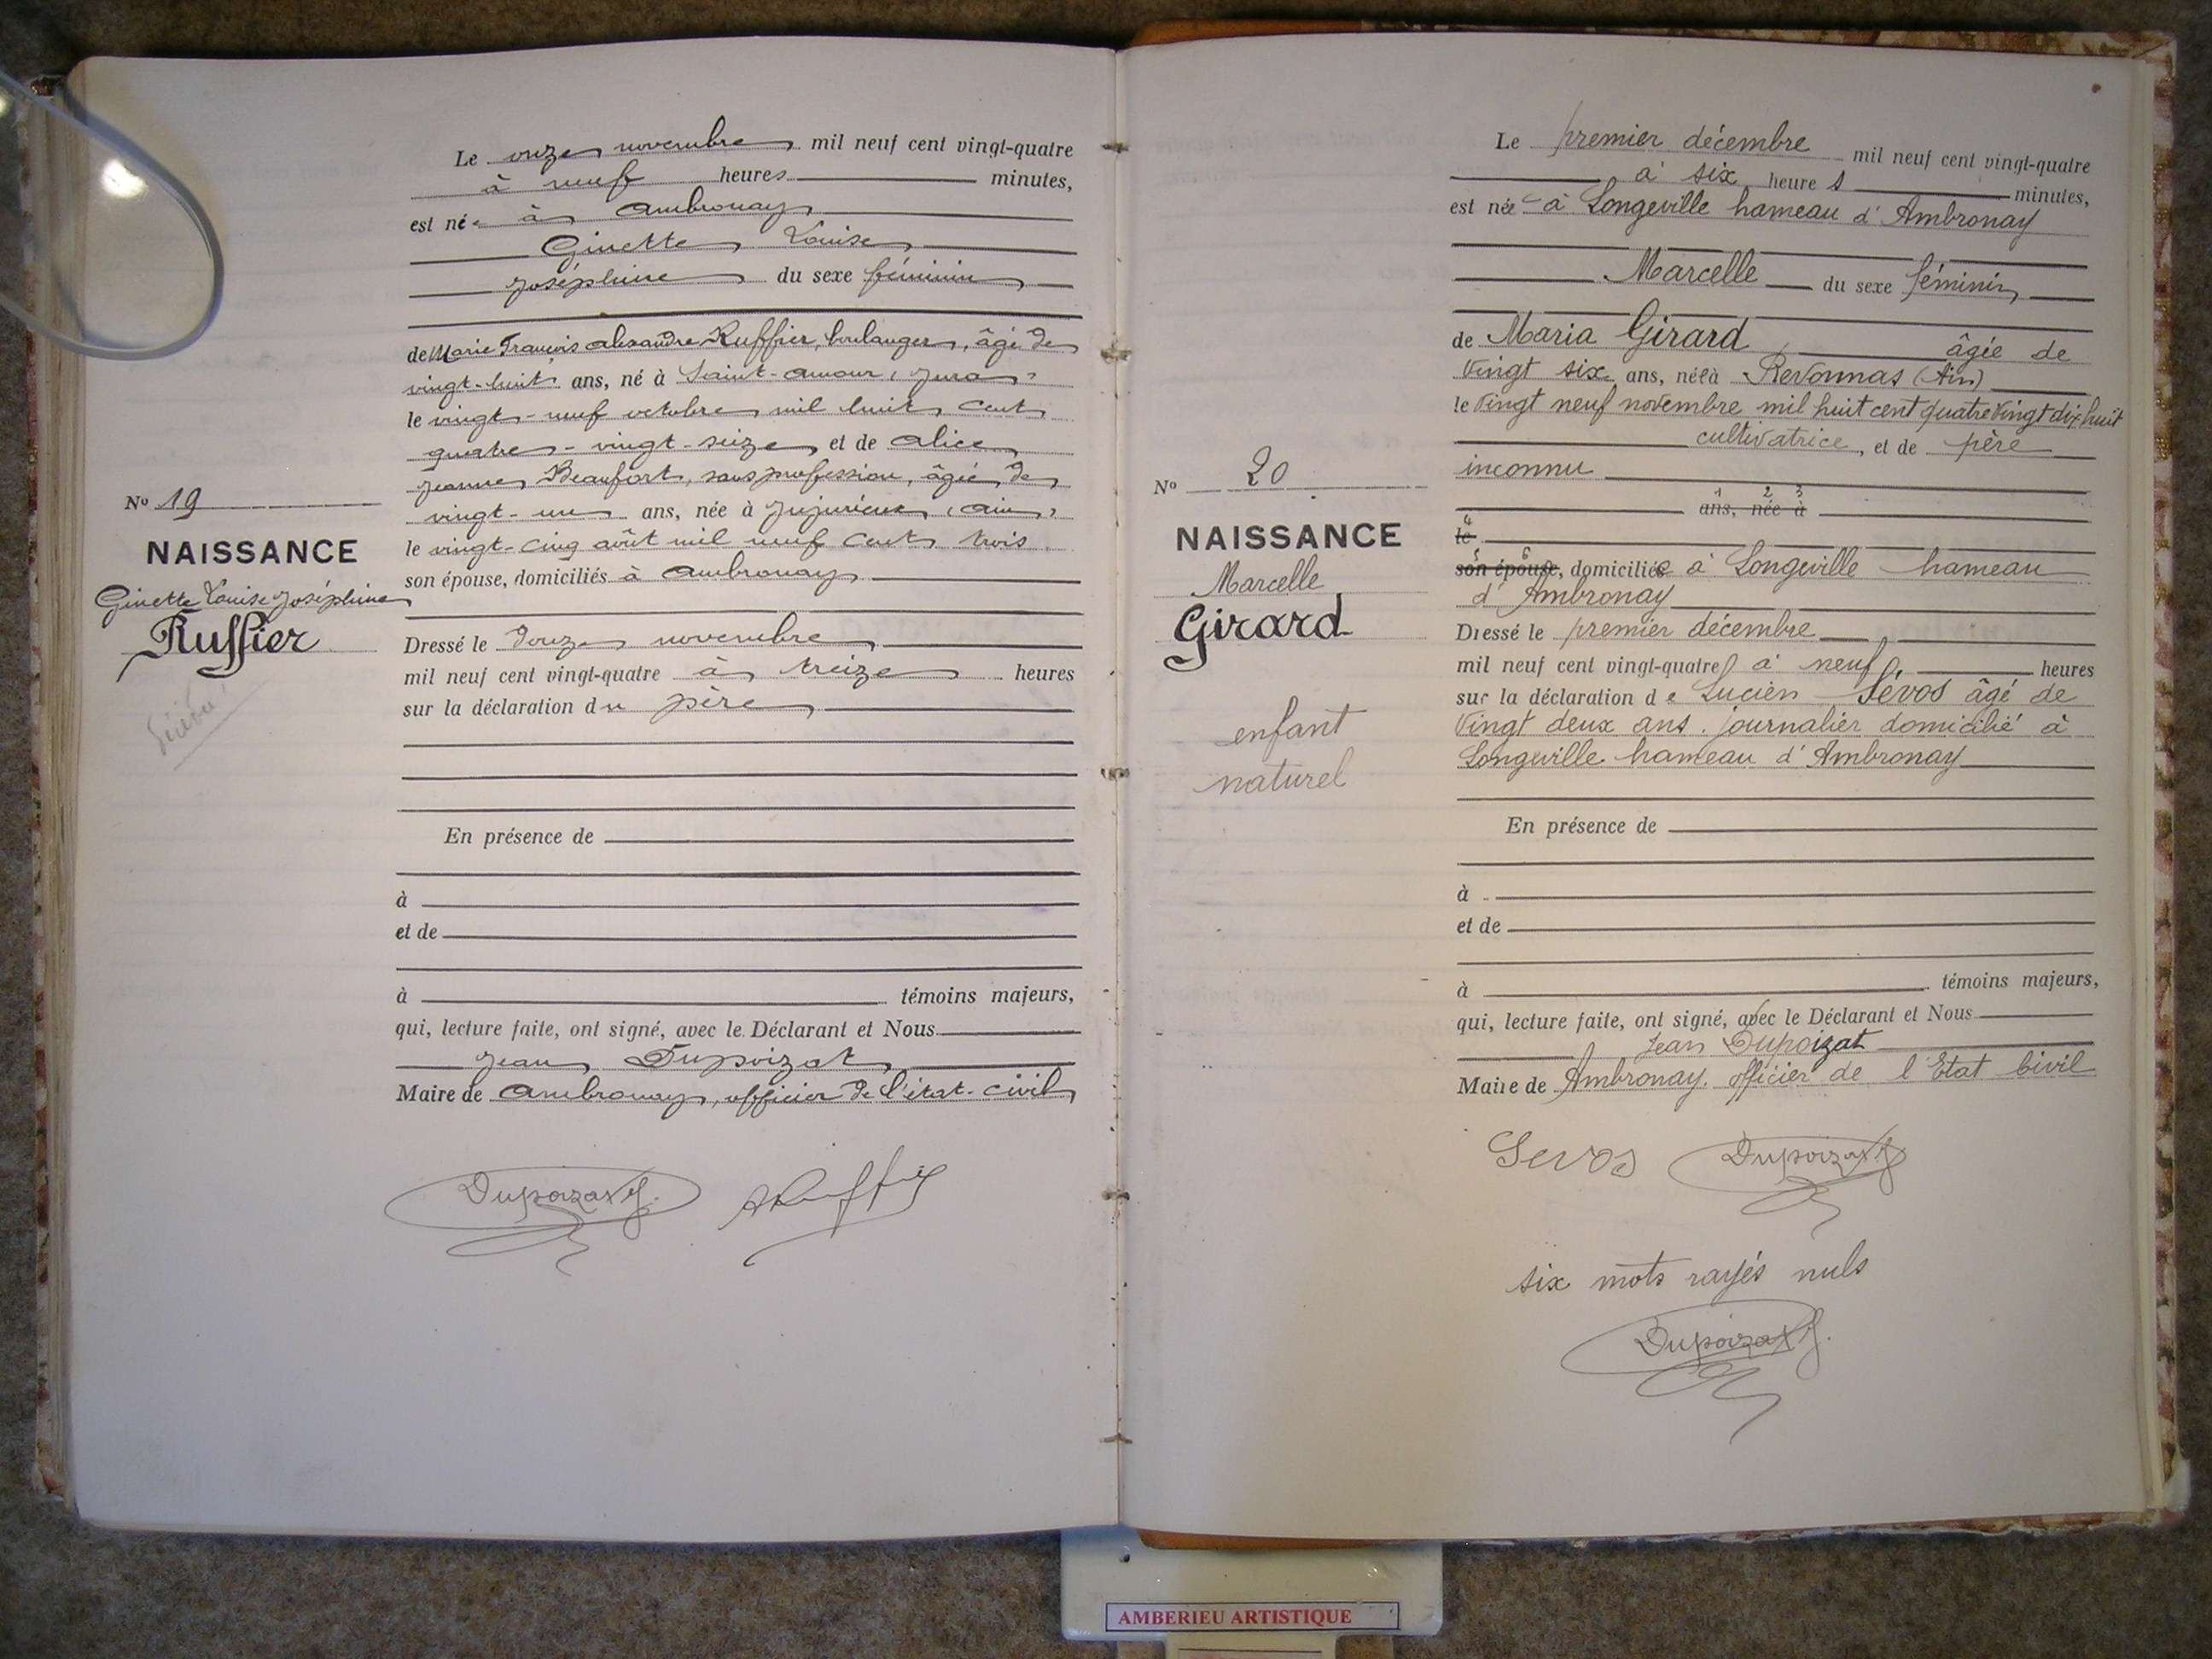 Le onze novembre mil neuf cent vingt-quatre
à neuf heures minutes,
est née à Ambronay
Ginette Louise
Joséphine du sexe féminin
de Marie François Alexandre Ruffier, boulanger, âgé de
vingt-huit ans, né à Saint-Amour, Jura,
le vingt-neuf octobre mil huit cent
quatre-vingt-seize et de Alice
Jeanne Beaufort, sans profession, âgée de
vingt-un ans, née à Jujurieux, Ain,
le vingt-cinq août mil neuf cent trois
son épouse, domiciliés à Ambronay
Dressé le douze novembre
mil neuf cent vingt-quatre à treize heures
sur la déclaration du père
En présence de
à
et de
à témoins majeurs,
qui, lecture faite, ont signé, avec le Déclarant et Nous
Jean Dupoizat
Maire de Ambronay, officier de l'état-civil
Dupoizat J. A Ruffier
No 19
NAISSANCE
Ginette Louise Joséphine
Ruffier
Le premier décembre mil neuf cent vingt-quatre
à six heures minutes,
est née à Longeville hameau d'Ambronay
Marcelle du sexe féminin
de Maria Girard âgée de
vingt six ans, née à Revonnas (Ain)
le vingt neuf novembre mil huit cent quatre vingt dix huit
cultivatrice, et de père
inconnu
1 2 3
ans, née à
4
le
5 6
son épouse, domiciliée à Longeville hameau
d'Ambronay
Dressé le premier décembre
mil neuf cent vingt-quatre à neuf heures
sur la déclaration de Lucien Sévos âgé de
vingt deux ans. journalier domicilié à
Longeville hameau d'Ambronay
En présence de
à
et de
à témoins majeurs,
qui, lecture faite, ont signé, avec le Déclarant et Nous
Jean Dupoizat
Maire de Ambronay. officier de l'Etat Civil
Sevos Dupoizat J.
six mots rayés nuls
Dupoizat J.
No 20
NAISSANCE
Marcelle
Girard
enfant
naturel
AMBERIEU ARTISTIQUE